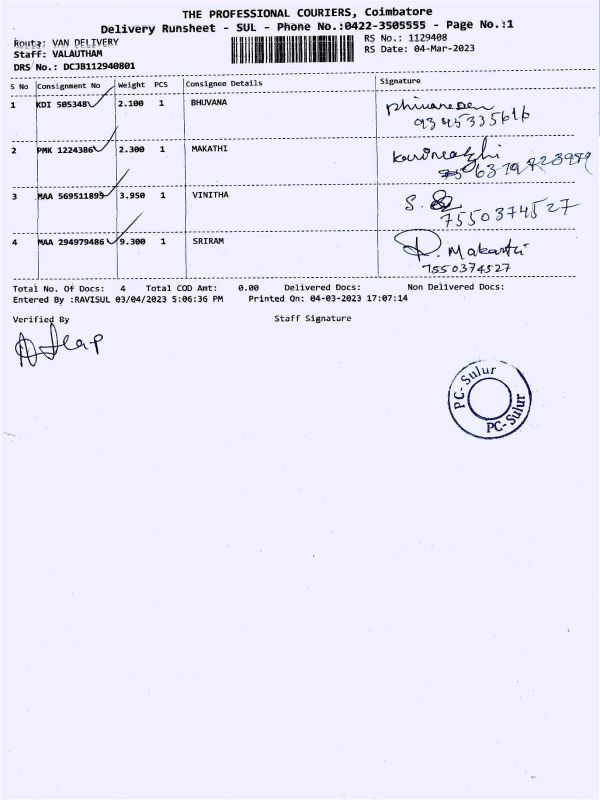 THE PROFESSIONAL COURIERS, Coimbatore
Delivery Runsheet - SUL - Phone No.:0422-3505555 - Page No.:1
Route: VAN DELIVERY
RS No.: 1129408
Staff: VALAUTHAM
RS Date: 04-Mar-2023
DRS No.: DCJB112940801
S No Consignment No Weight PCS Consignee Details Signature
1 KDI 505348 2.100 1 BHUVANA
9345335616
2 PMK 1224386 2.300 1 MAKATHI
3 MAA 569511895 3.950 1 VINITHA
S.
7550374527
4 MAA 294979486 9.300 1 SRIRAM
7550374527
Total No. Of Docs: 4 Total COD Amt: 0.00 Delivered Docs: Non Delivered Docs:
Entered By :RAVISUL 03/04/2023 5:06:36 PM Printed On: 04-03-2023 17:07:14
Verified By Staff Signature
PC-Sulur
PC-Sulur